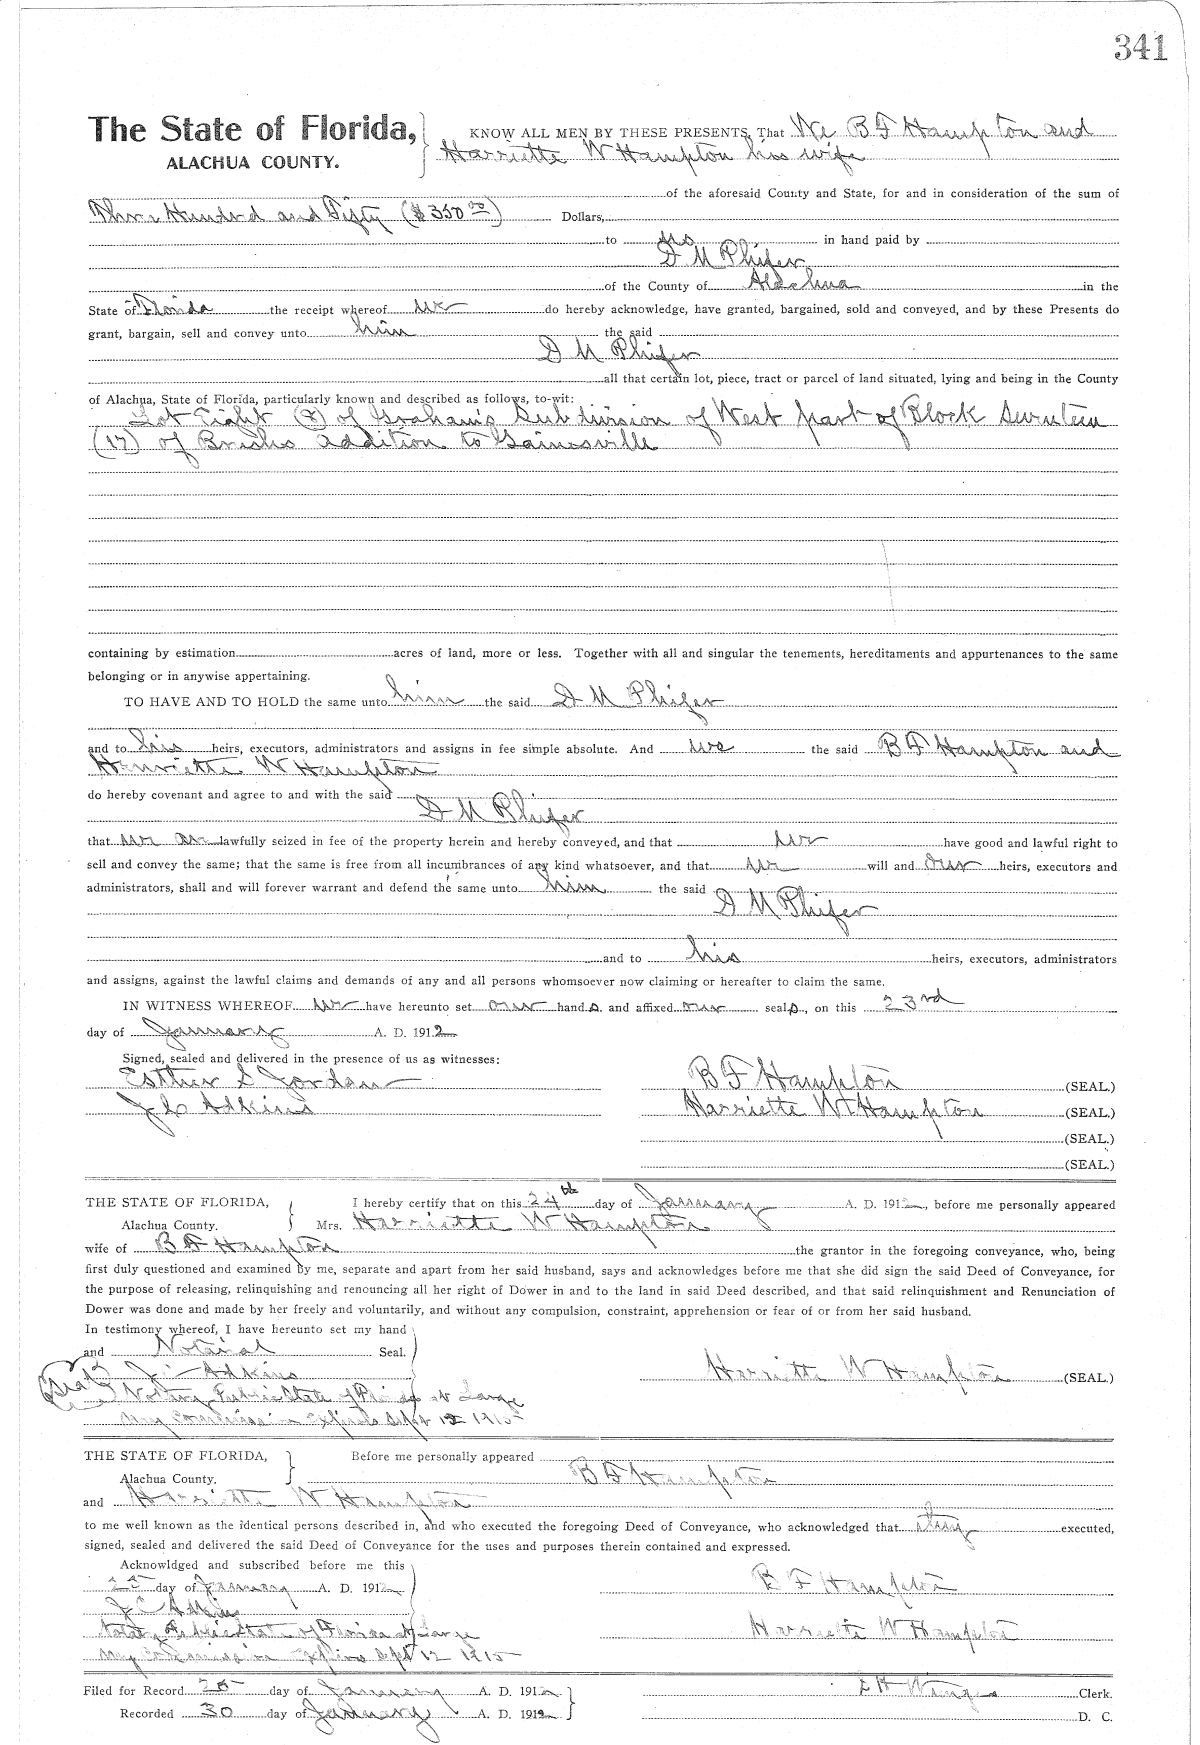 341
The State of Florida, KNOW ALL MEN BY THESE PRESENTS, That We B F Hampton and
ALACHUA COUNTY. Harriette W Hampton his wife
of the aforesaid County and State, for and in consideration of the sum of
Three Hundred and Fifty ($350 00) Dollars,
to us in hand paid by
D M Phifer
of the County of Alachua in the
State of Florida the receipt whereof we do hereby acknowledge, have granted, bargained, sold and conveyed, and by these Presents do
grant, bargain, sell and convey unto him the said
D M Phifer
all that certain lot, piece, tract or parcel of land situated, lying and being in the County
of Alachua, State of Florida, particularly known and described as follows, to-wit:
Lot Eight (8) of Graham's Subdivision of West part of Block Seventeen
(17) of Brushs addition to Gainesville
containing by estimation acres of land, more or less. Together with all and singular the tenements, hereditaments and appurtenances to the same
belonging or in anywise appertaining.
TO HAVE AND TO HOLD the same unto him the said D M Phifer
and to his heirs, executors, administrators and assigns in fee simple absolute. And we the said B F Hampton and
Henriette W Hampton
do hereby covenant and agree to and with the said
D M Phifer
that we are lawfully seized in fee of the property herein and hereby conveyed, and that we have good and lawful right to
sell and convey the same; that the same is free from all incumbrances of any kind whatsoever, and that we will and our heirs, executors and
administrators, shall and will forever warrant and defend the same unto him the said
D M Phifer
and to his heirs, executors, administrators
and assigns, against the lawful claims and demands of any and all persons whomsoever now claiming or hereafter to claim the same.
IN WITNESS WHEREOF we have hereunto set our hands and affixed our seals, on this 23rd
day of January A. D. 1912
Signed, sealed and delivered in the presence of us as witnesses:
Esther S Jordan B F Hampton (SEAL.)
J C Adkins Harriette W Hampton (SEAL.)
(SEAL.)
(SEAL.)
THE STATE OF FLORIDA, I hereby certify that on this 24th day of January A. D. 1912, before me personally appeared
Alachua County. Mrs. Harriette W Hampton
wife of B F Hampton the grantor in the foregoing conveyance, who, being
first duly questioned and examined by me, separate and apart from her said husband, says and acknowledges before me that she did sign the said Deed of Conveyance, for
the purpose of releasing, relinquishing and renouncing all her right of Dower in and to the land in said Deed described, and that said relinquishment and Renunciation of
Dower was done and made by her freely and voluntarily, and without any compulsion, constraint, apprehension or fear of or from her said husband.
In testimony whereof, I have hereunto set my hand
and Notarial Seal.
Seal J C Adkins Harriette W Hampton (SEAL.)
Notary Public State of Florida at Large
My Commission Expires Sept 12 1915
THE STATE OF FLORIDA, Before me personally appeared
Alachua County. B F Hampton
and Harriette W Hampton
to me well known as the identical persons described in, and who executed the foregoing Deed of Conveyance, who acknowledged that they executed,
signed, sealed and delivered the said Deed of Conveyance for the uses and purposes therein contained and expressed.
Acknowldged and subscribed before me this
25 day of January A. D. 1912 B F Hampton
J C Adkins
Notary Public State of Florida at Large Harriette W Hampton
My Commission Expires Sept 12 1915
Filed for Record 25 day of January A. D. 1912 Clerk.
Recorded 30 day of January A. D. 1912 D. C.